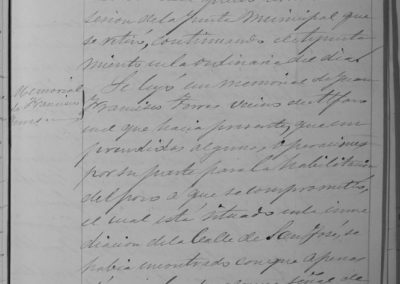 sesion de la Junta Municipal que
se retiró, continuando el Ayunta
miento en la ordinaria del dia.
Memorial
de Francisco
Torres
Se leyó un memorial de Juan
Francisco Torres vecino de
en el que hacia presente, que em
prendidas algunas operaciones
por su parte para la habilitacion
del pozo á que se comprometió,
el cual está situado en la inme
diacion de la Calle de San José, se
habia encontrado con que apenas
señal de